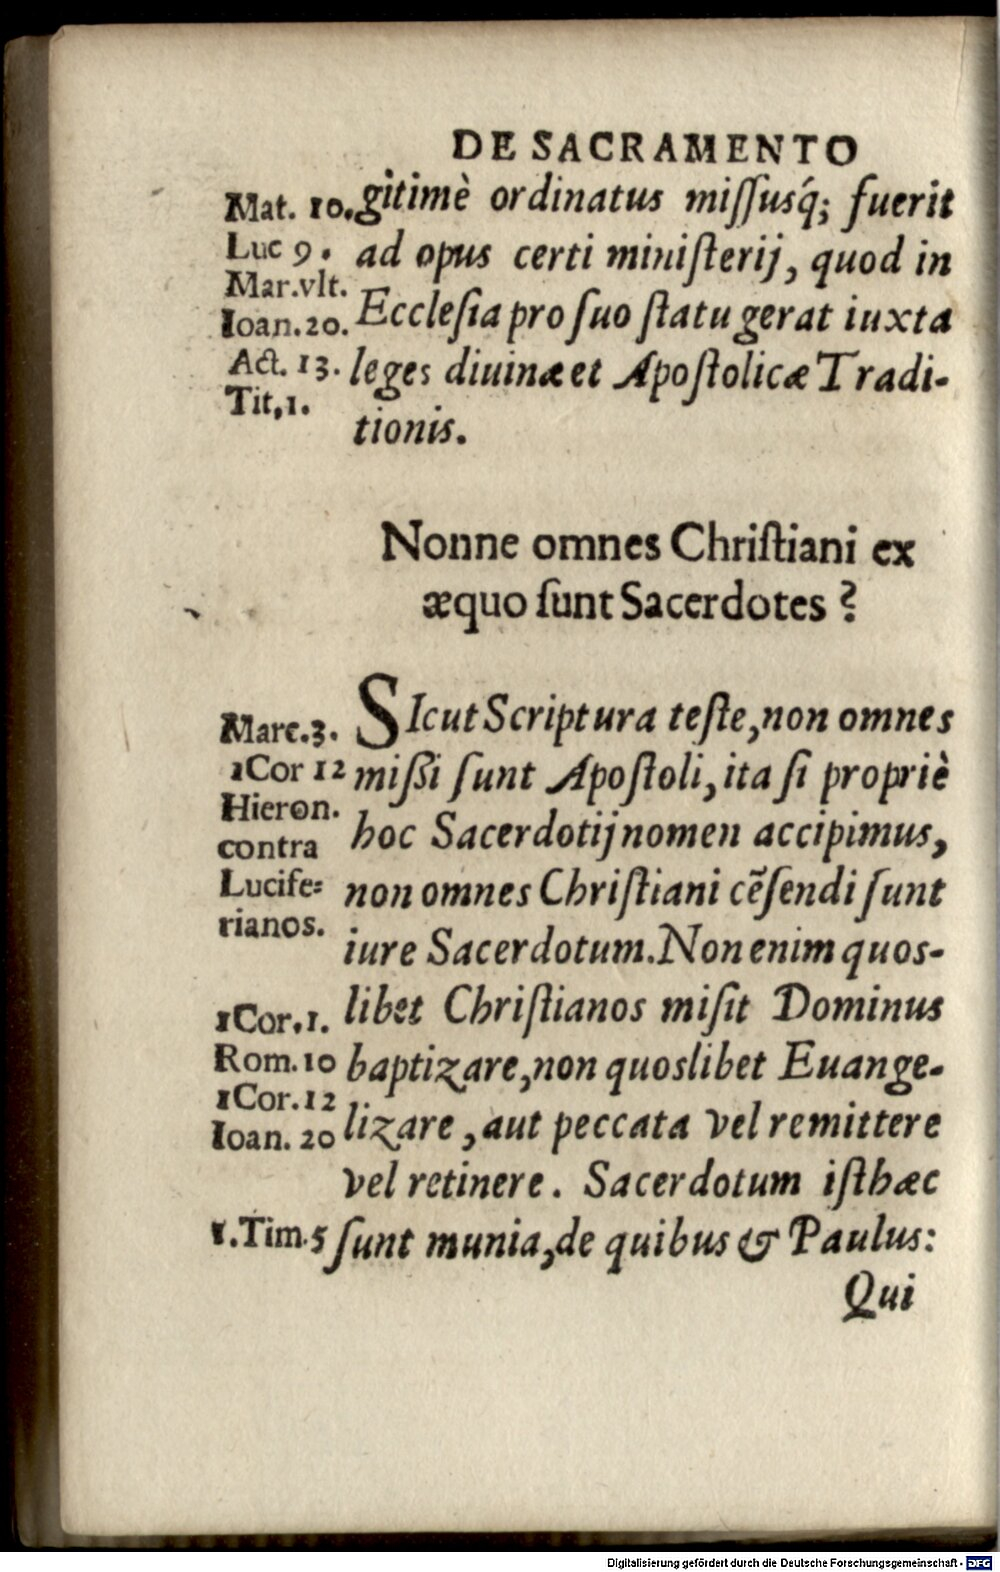 DE SACRAMENTO
Mat. 10. gitimè ordinatus miſſusq́; fuerit
Luc 9. ad opus certi miniſterij, quod in
Mar.vlt.
Ioan.20. Eccleſia pro ſuo ſtatu gerat iuxta
Act. 13. leges diuinæ et Apoſtolicæ Tradi-
Tit,1. tionis.
Nonne omnes Chriſtiani ex
æquo ſunt Sacerdotes ?
Marc.3. SIcut Scriptura teſte, non omnes
1Cor 12 mißi ſunt Apoſtoli, ita ſi propriè
Hieron.
contra hoc Sacerdotij nomen accipimus,
Lucife= non omnes Chriſtiani cẽſendi ſunt
rianos. iure Sacerdotum. Non enim quos-
1Cor.1. libet Chriſtianos miſit Dominus
Rom.10 baptizare, non quoslibet Euange-
1Cor.12
Ioan. 20 lizare, aut peccata vel remittere
vel retinere. Sacerdotum iſthæc
1.Tim.5 ſunt munia, de quibus & Paulus:
Qui
Digitalisierung gefördert durch die Deutsche Forschungsgemeinschaft - DFG